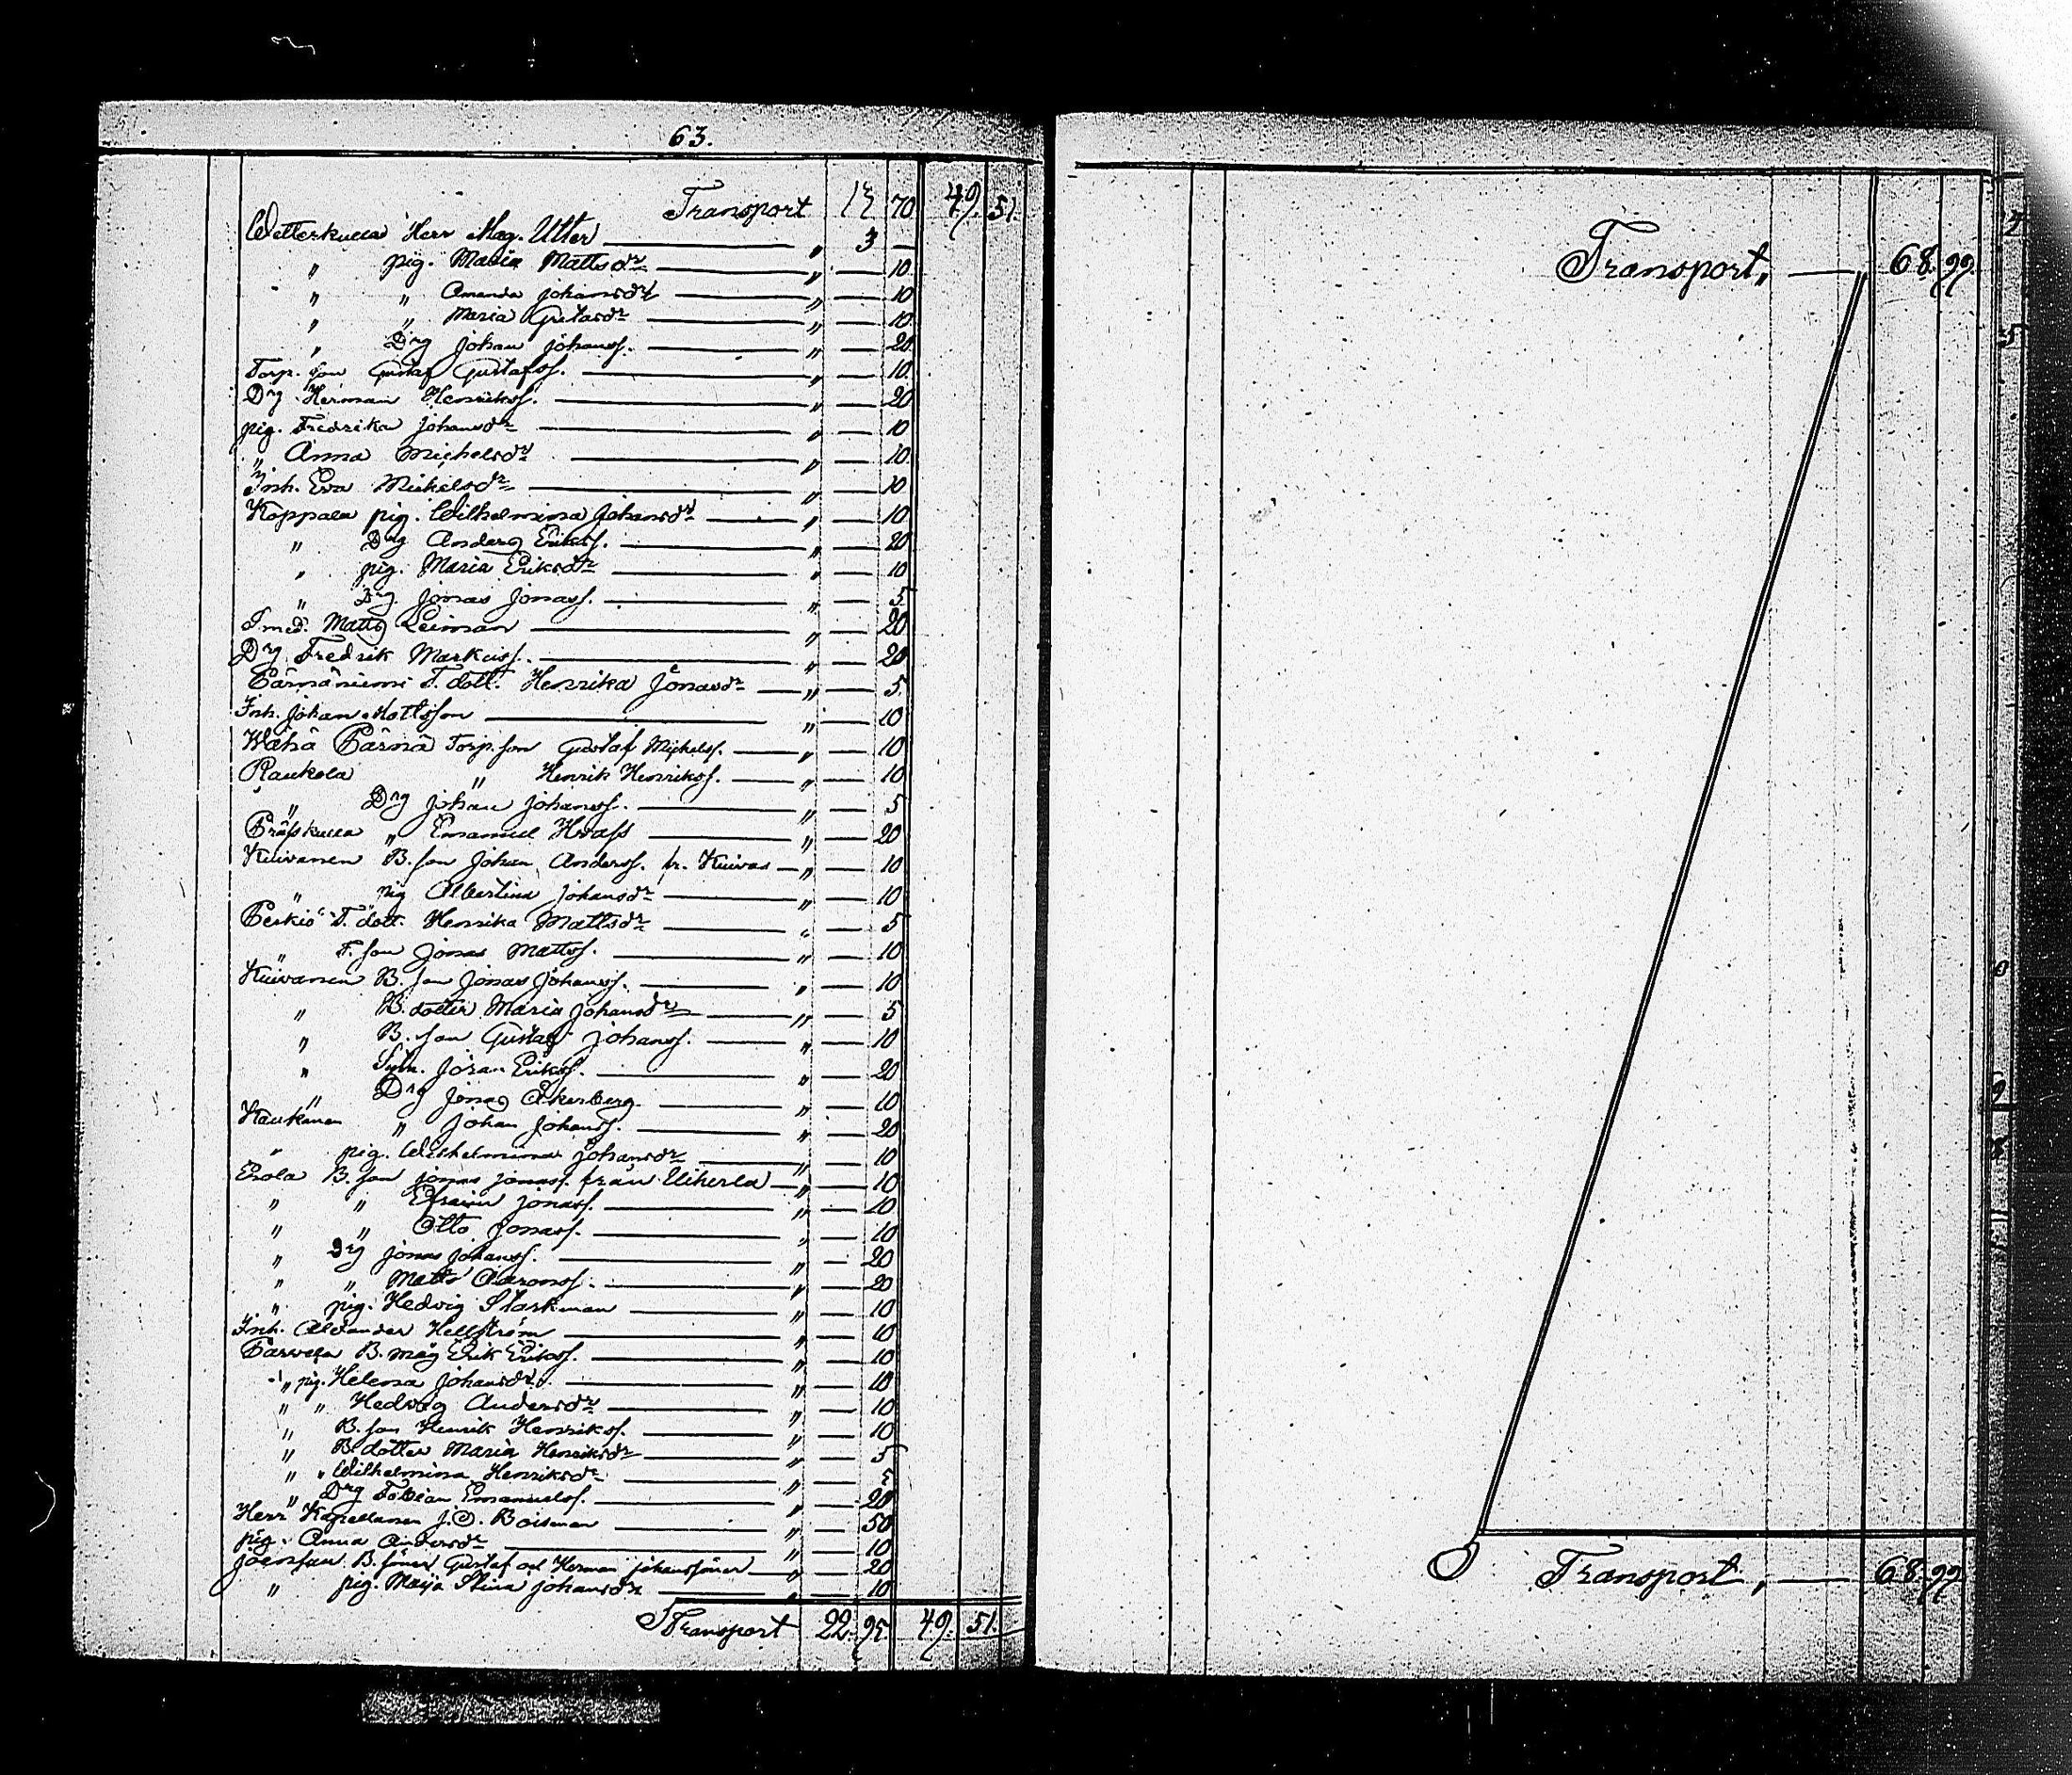 63.
Transport 49. 51.
Wetterkulla Herr Mag. Utter — " 3 —
" pig. Maria Mattsdr — " — 10.
" " Amanda Johansdr — " — 10
" " Maria Gustasdr — " — 10.
" Drg Johan Johanss. — " — 20.
Torp. son Gustaf Gustafss. — " — 10.
Drg Herman Henrikss. — " — 20
pig. Fredrika Johansdr — " — 10
" Anna Michelsdr — " — 10.
Inh. Eva Mickelsdr — " — 10
Koppala pig. Wilhelmina Johansdr — " — 10
" Drg Anders Erikss. — " — 20
" pig. Maria Eriksdr — " — 10
" Drg. Jonas Jonass. — " — 5.
Smed. Matts Leiman — " — 20
Drg Fredrik Markuss. — " — 20
Pärnäniemi T. dott. Henrika Jonasdr — " — 5.
Inh. Johan Mattsson — " — 10
Wähä Pärnä Torp. son Gustaf Michelss. — " — 10
Raukola " Henrik Henrikss. — " — 10
" Drg Johan Johanss. — " — 5
Präfskulla " Emanuel Hvass — " — 20
Kuivanen B. son Johan Anderss. fr. Kuivas — " — 10
" pig Albertina Johansdr — " — 10
Peskiö T. dott. Henrika Mattsdr — " — 5
" T. son Jonas Mattss. — " — 10
Kuivanen B. son Jonas Johanss. — " — 10
" B. dotter Maria Johansdr — " — 5
" B. son Gustaf Johanss. — " — 10
" Sytn. Jöran Erikss. — " — 20
" Drg Jonas Åkerberg — " — 10
Kaukanen " Johan Johanss. — " — 20
" pig. Wilhelmina Johansdr — " — 10
Erola B. son Jonas Jonass. från Ukerla — " — 10
" " Efraim Jonass. — " — 10
" " Otto Jonass. — " — 10
" Drg Jonas Johanss. — " — 20
" " Matts Aaronss. — " — 20
" pig. Hedvig Starkman — " — 10
Inh. Alexander Hellström — " — 10
Parvela B. måg Erik Erikss. — " — 10
" pig. Helena Johansdr — " — 10
" " Hedvig Andersdr — " — 10
" B. son Henrik Henrikss. — " — 10
" B. dotter Maria Henriksdr — " — 5
" " Wilhelmina Henriksdr — " — 5
" Drg Tobias Emanuelss. — " — 20
Herr Kapellanen J. O. Boisman — " — 50
pig. Anna Andersdr — " — 10
B. söner Gustaf och Herman Johanssöner — " — 20
" pig. Maija Stina Johansdr — " — 10
Transport 22. 95 49. 51.
Transport, — " 68. 99.
Transport, — 68. 99